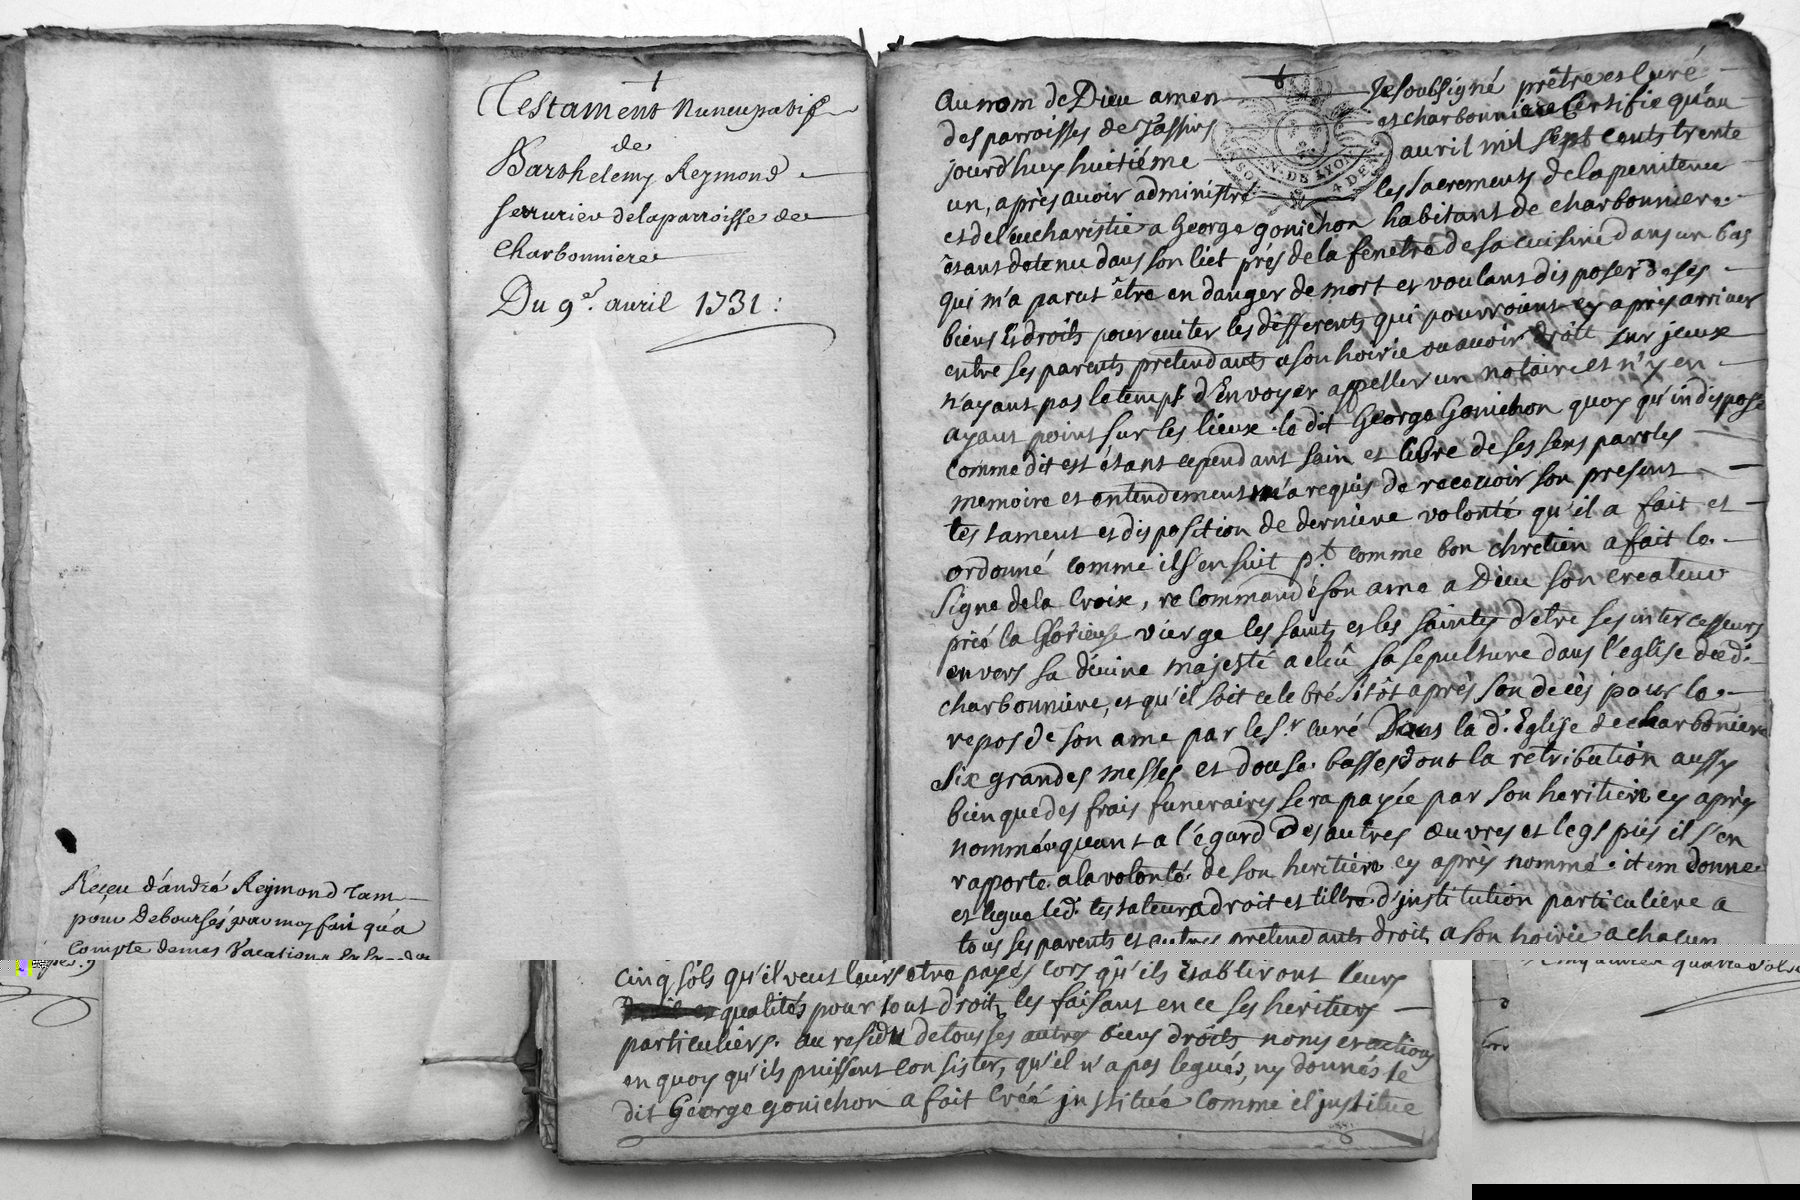 Testament Nuncupatif
de
Barthelemy Reymond
serrurier de la parroisse de
Charbonniere
Du 9e. avril 1731 :
Reçeu d'andré Reymond tam
pour Deboursés par moy fait qu'a
compte de mes Vacations
Au nom de Dieu amen Je soubsigné prêtre et Curé
des parroisses de Tassins et charbonniere Certifie qu'au
jourd'huy huitiéme avril mil sept cents trente
un, après avoir administré les sacrements de la penitence
et de l'eucharistie a George gonichon habitant de charbonniere
étant detenu dans son liet près de la fenetre de sa cuisine dans un bas
qui m'a parut être en danger de mort et voulant disposer de ses
biens et droits pour eviter les differents qui pourroient cy après arriver
entre ses parents pretendants a son hoirie ou avoir droit sur jeux
n'ayant pas le temps d'Envoyer appeller un notaire et n'y en
ayant point sur les lieux le dit George Gonichon quoy qu'indisposé
comme dit est étant cependant sain et libre de ses sens paroles
memoire et entendement m'a requis de recevoir son present
testament et disposition de derniere volonté qu'il a fait et
ordonné comme il s'en suit pt. comme bon chretien a fait le
signe de la Croix, recommandé son ame a Dieu son createur
prié la Glorieuse vierge les saints et les saintes d'etre ses intercesseurs
envers sa divine majesté a eleû sa sepulture dans l'église dud.
charbonniere, et qu'il soit celebré sitôt après son decès pour le
repos de son ame par le Sr. curé Dans la d. Eglise de charboniere
six grandes messes et douse basses dont la retribution aussy
bien que des frais funeraires sera payée par son heritiere cy après
nommée quant a l'égard des autres œuvres et legs pies il s'en
rapporte a la volonté de son heritiere cy après nommé. item donne
et legue led. testateur a droit et tiltre d'institution particuliére a
tous ses parents et autres pretendants droit a son hoirie a chacun
cinq sols qu'il veut leurs etre payés lors qu'ils établiront leurs
qualités pour tout droit, les faisant en ce ses heritiers
particuliers. au residu de tous ses autres biens droits noms et actions
en quoy qu'ils puissent consister, qu'il n'a pas legués, ny donnés le
dit George gonichon a fait créé institué comme il justitue